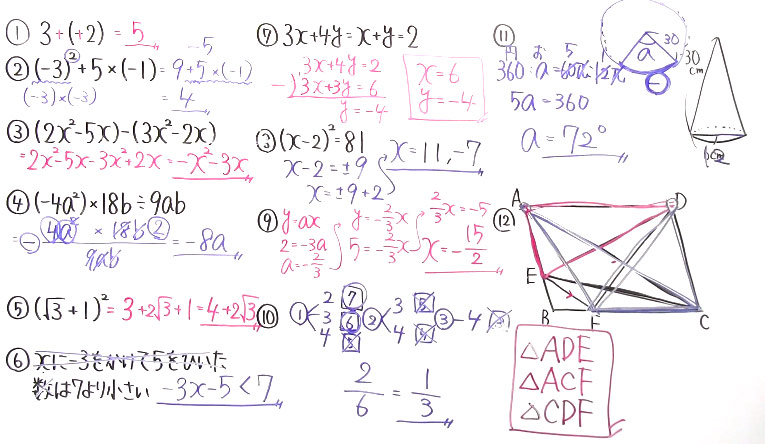 ① 3+(+2)=5
-5
② (-3)²+5×(-1)=9+5×(-1)
(-3)×(-3) =4
③ (2x²-5x)-(3x²-2x)
=2x²-5x-3x²+2x=-x²-3x
④ (-4a²)×18b÷9ab
=- 4a² × 18b 2 / 9ab = -8a
⑤ (√3+1)²=3+2√3+1=4+2√3
⑥ xに-3をかけて5をひいた
数は7より小さい -3x-5<7
⑦ 3x+4y=x+y=2
3x+4y=2
-) 3x+3y=6
y=-4
x=6
y=-4
③ (x-2)²=81
x-2=±9
x=±9+2
x=11,-7
⑨ y=ax
2=-3a
a=-2/3
y=-2/3x
5=-2/3x
2/3x=-5
x=-15/2
⑩ ① 2 7
3 6
4 5
② 3 5
4 4
③ 4 3
2/6=1/3
⑪
円 お 5
360:a=60π:12π
5a=360
a=72°
a
30
30
cm
⑫
A
D
E
B
F
C
△ADE
△ACF
△CDF